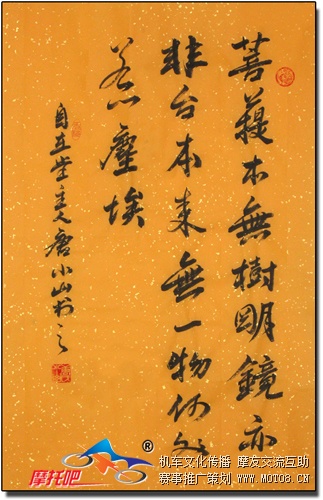 菩提本無樹明鏡亦
非台本来無一物何处
惹塵埃
自立堂主人唐小山书之
摩托吧
®
机车文化传播 摩友交流互助
赛事推广策划 WWW.MOTO8.CN